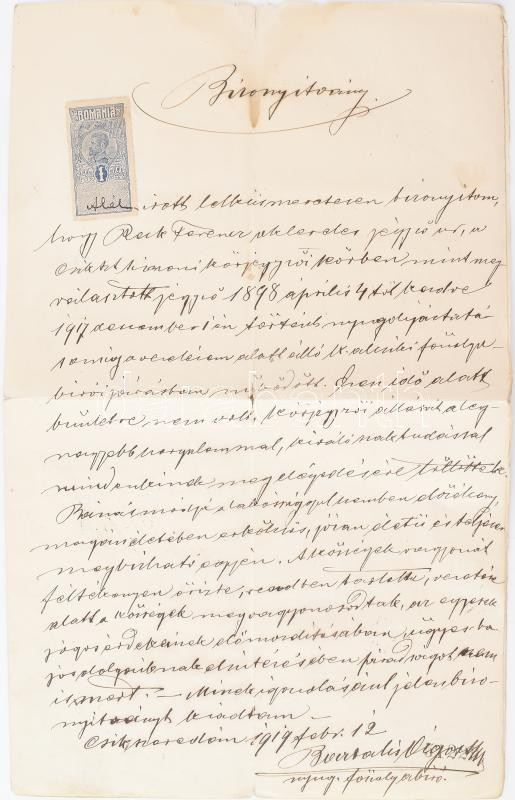 Bizonyitvány.
ROMANIA
1
Alul-irott lelkiismeretesen bizonyitom,
hogy Reck Ferencz okleveles jegyző ur, a
körjegyzői körben mint meg-
választott jegyző 1898 április 4 től kezdve
1917 december 1 én történt nyugdijaztatá-
saig a vezetésem alatt álló
birói járásban működött. Ezen idő alatt
büntetve nem volt, körjegyzői állását a leg-
nagyobb szorgalommal, kiváló szaktudással
mindenkinek megelégedésére töltötte be.
Bánásmódja a lakossággal szemben előzékeny,
magánéletében erkölcsös, józan életü és teljesen
megbizható egyén. A községek vagyonát
féltékenyen őrizte, rendben tartotta, vezetése
alatt a községek megvagyonosodtak, az egyesek
jogos érdekeinek előmozditásában, ügyes ba-
jos dolgaiknak elintézésében fáradságot nem
ismert. – Minek igazolásául jelen bizo-
nyitványt kiadtam –
Csikszeredán 1919 febr. 12
Bartalis Ágost
nyug. főszolgabiró.